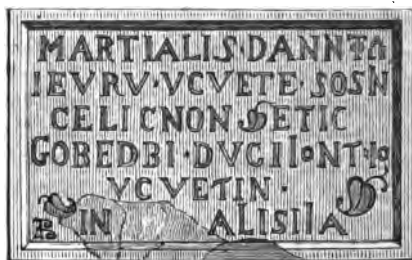 MARTIALIS·DANNTA
IEVRV·VCVETE·SOSIN
CELICNON ETIC
GOBEDBI·DVGIIONTIIO
VCVETIN·
IN ALISIIA